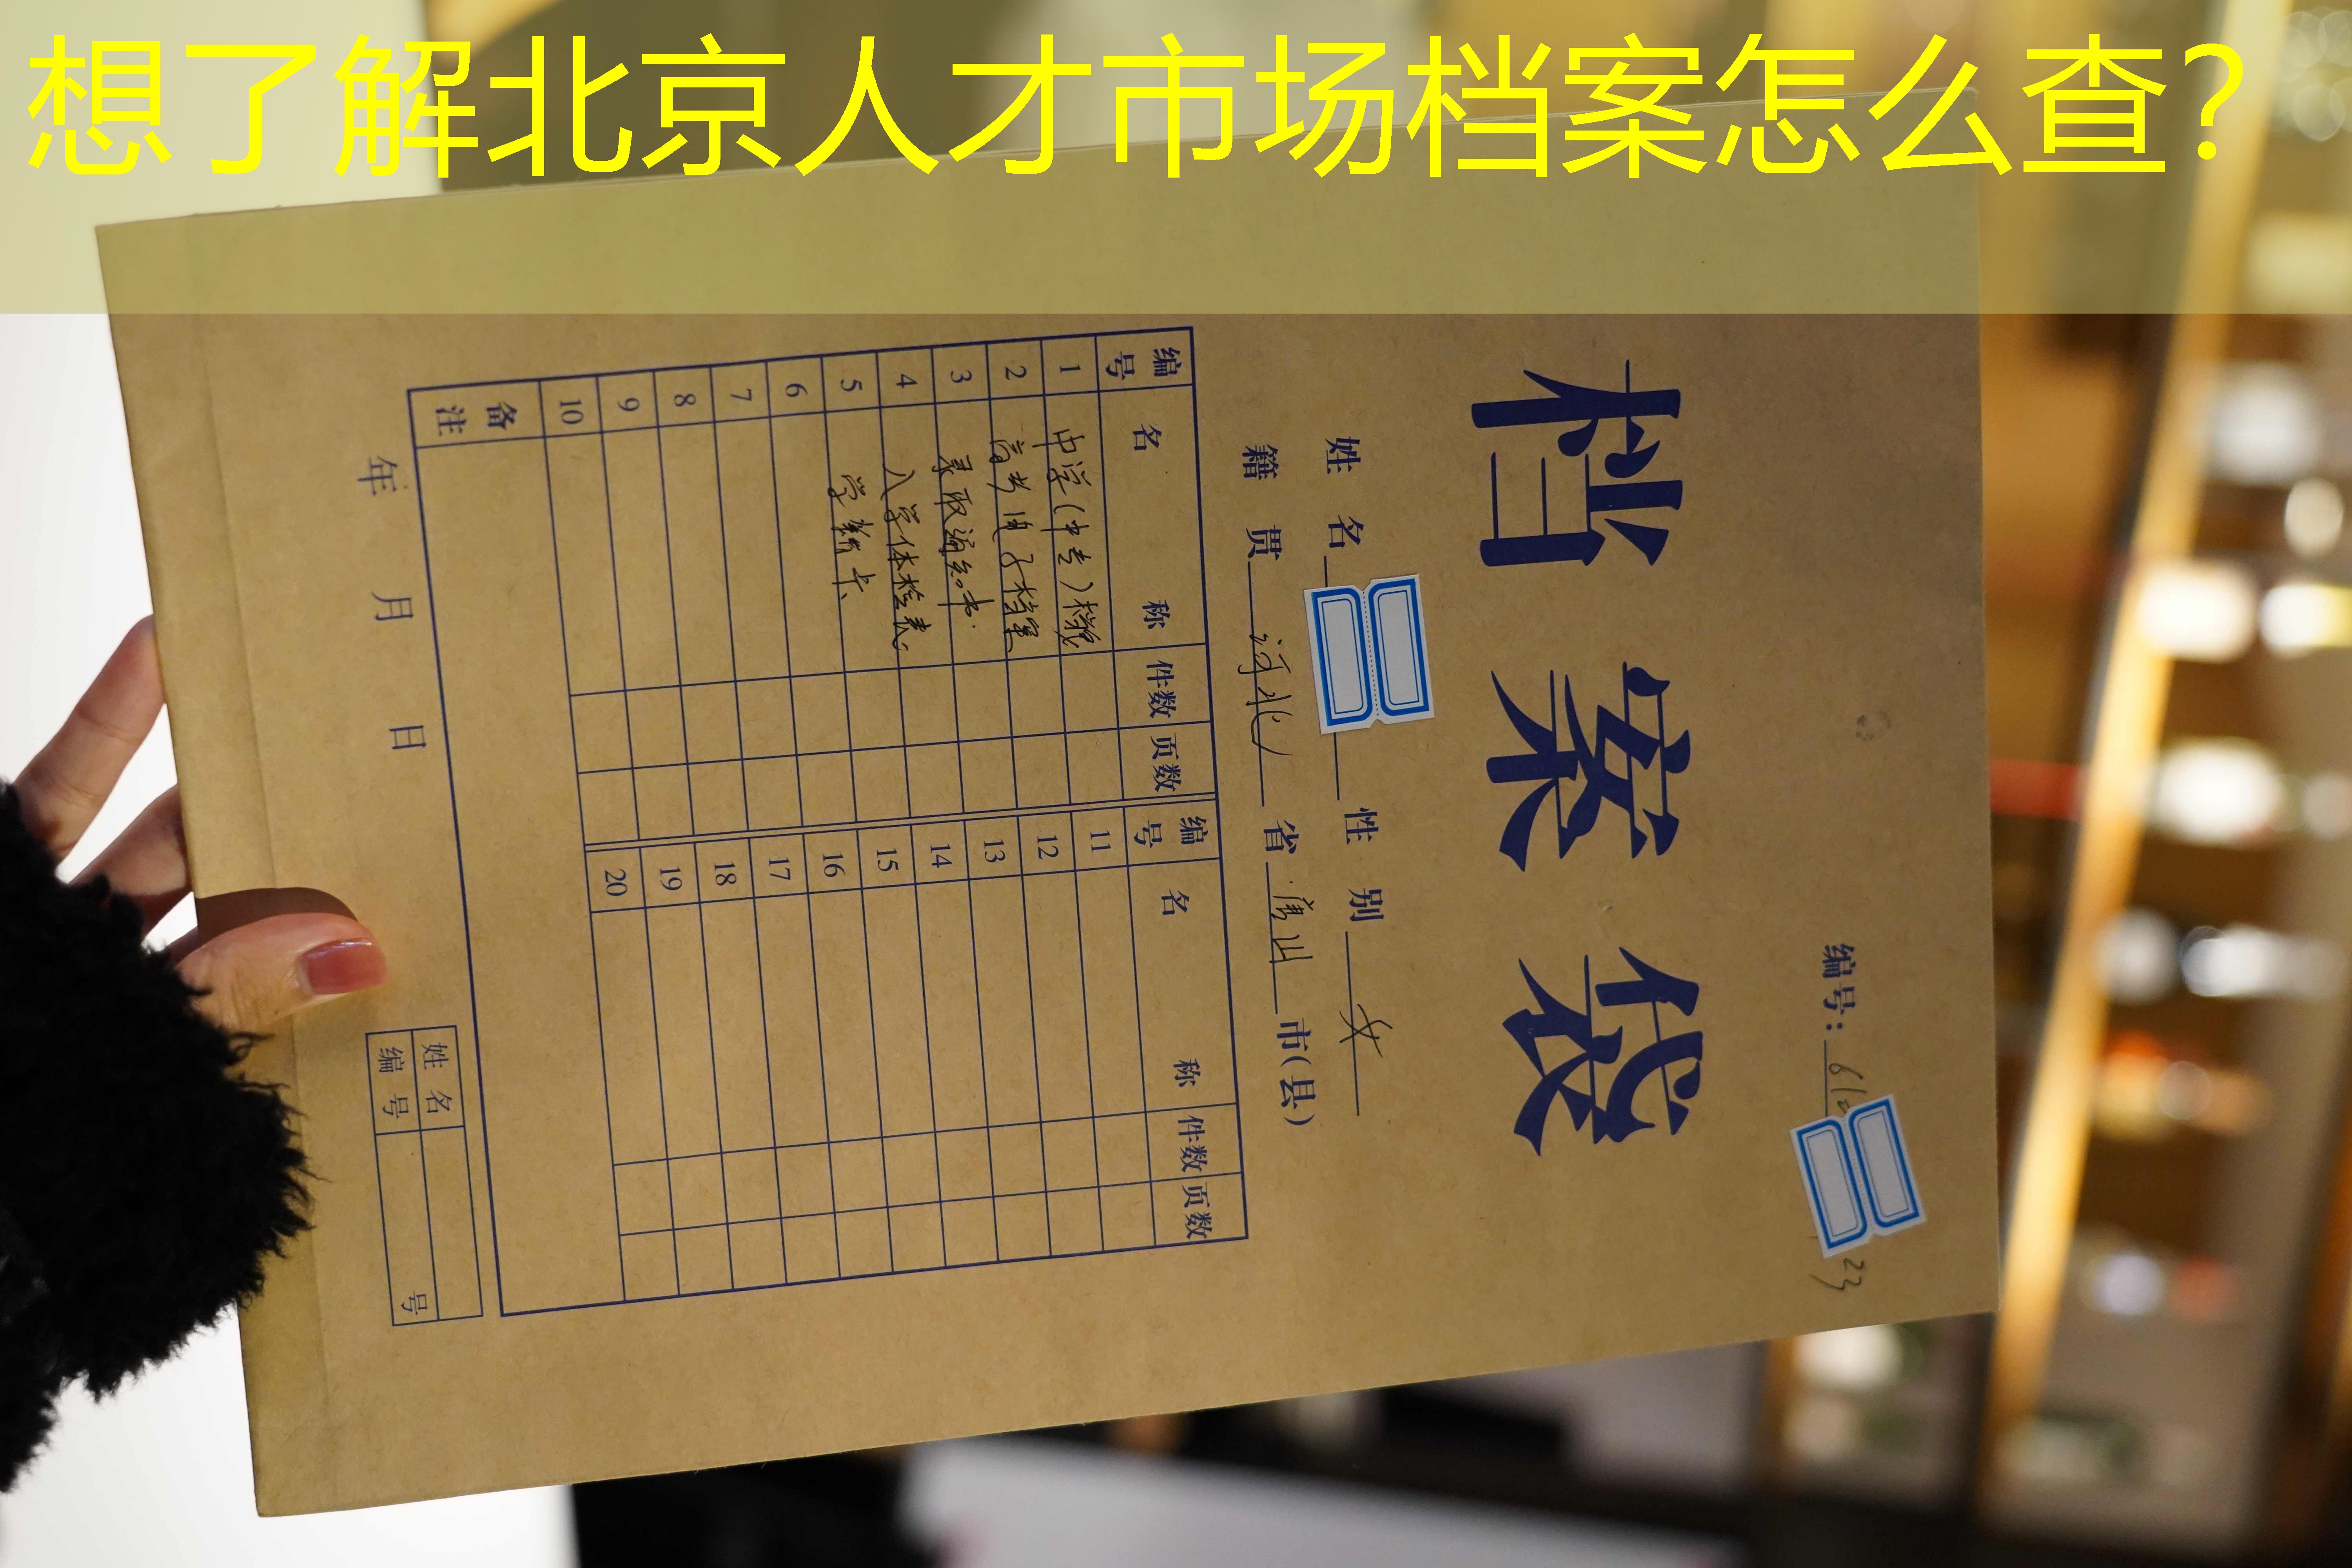 想了解北京人才市场档案怎么查?
编号:
23
档案袋
姓 名 性 别 女
籍 贯 河北 省 唐山 市(县)
编号 名 称 件数 页数 编号 名 称 件数 页数
1 中学(中专)档案 11
2 高考电子档案 12
3 录取通知书. 13
4 入学体检表 14
5 学籍卡 15
6 16
7 17
8 18
9 19
10 20
备注
年 月 日
姓 名
编 号 号